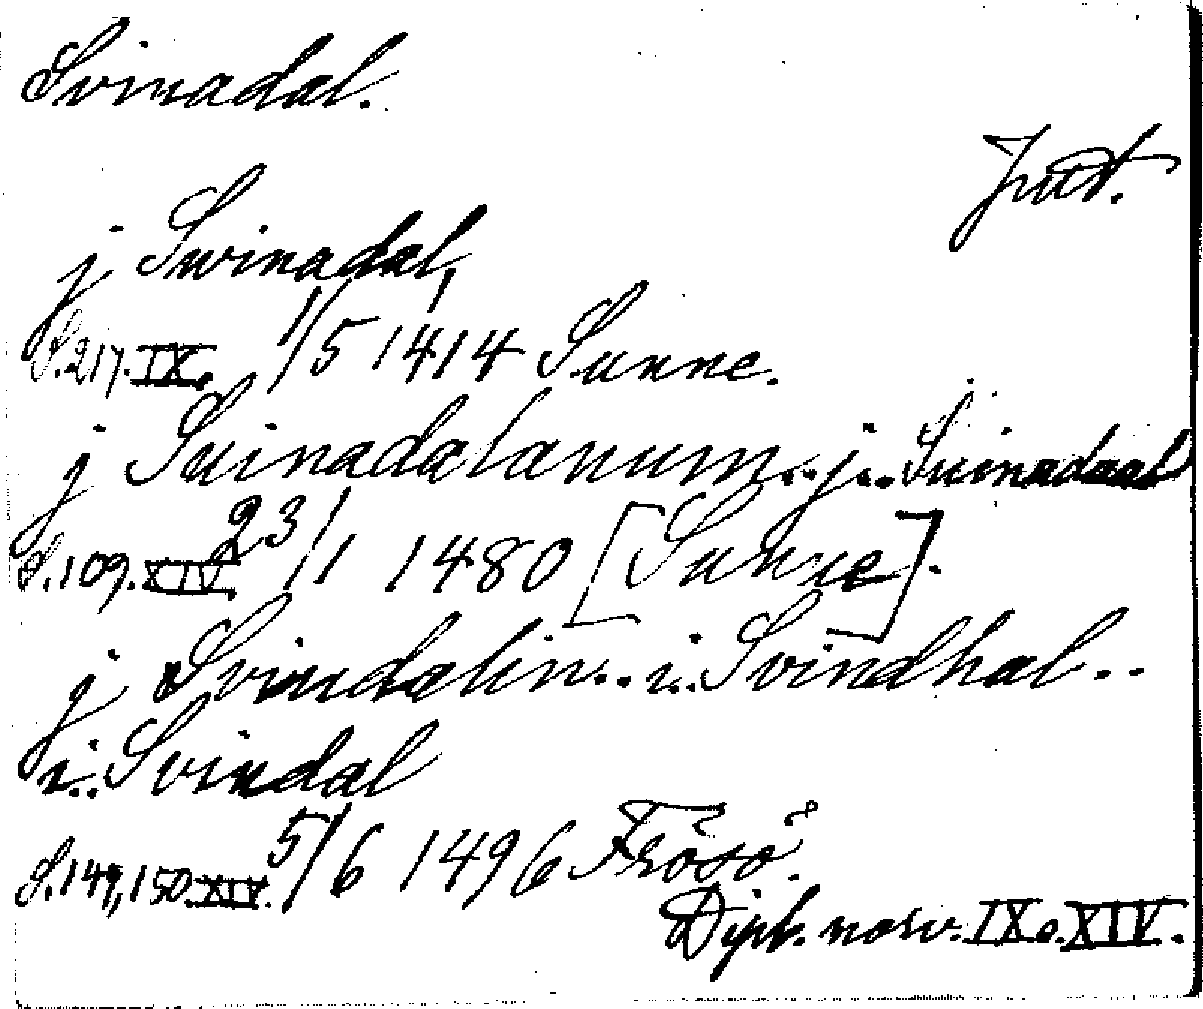 Svinadal.
Jmt.
j Swinadal,
S. 217. IX. 1/5 1414 Sunne.
j Suinadalanum .. j .. Suinadaal
S. 109. XIV. 23/1 1480 [Sunne].
j Svindalin .. i .. Svindhal ..
i .. Svindal
S. 149, 150. XIV. 5/6 1496 Frösö.
Dipl. norv. IX o. XIV.